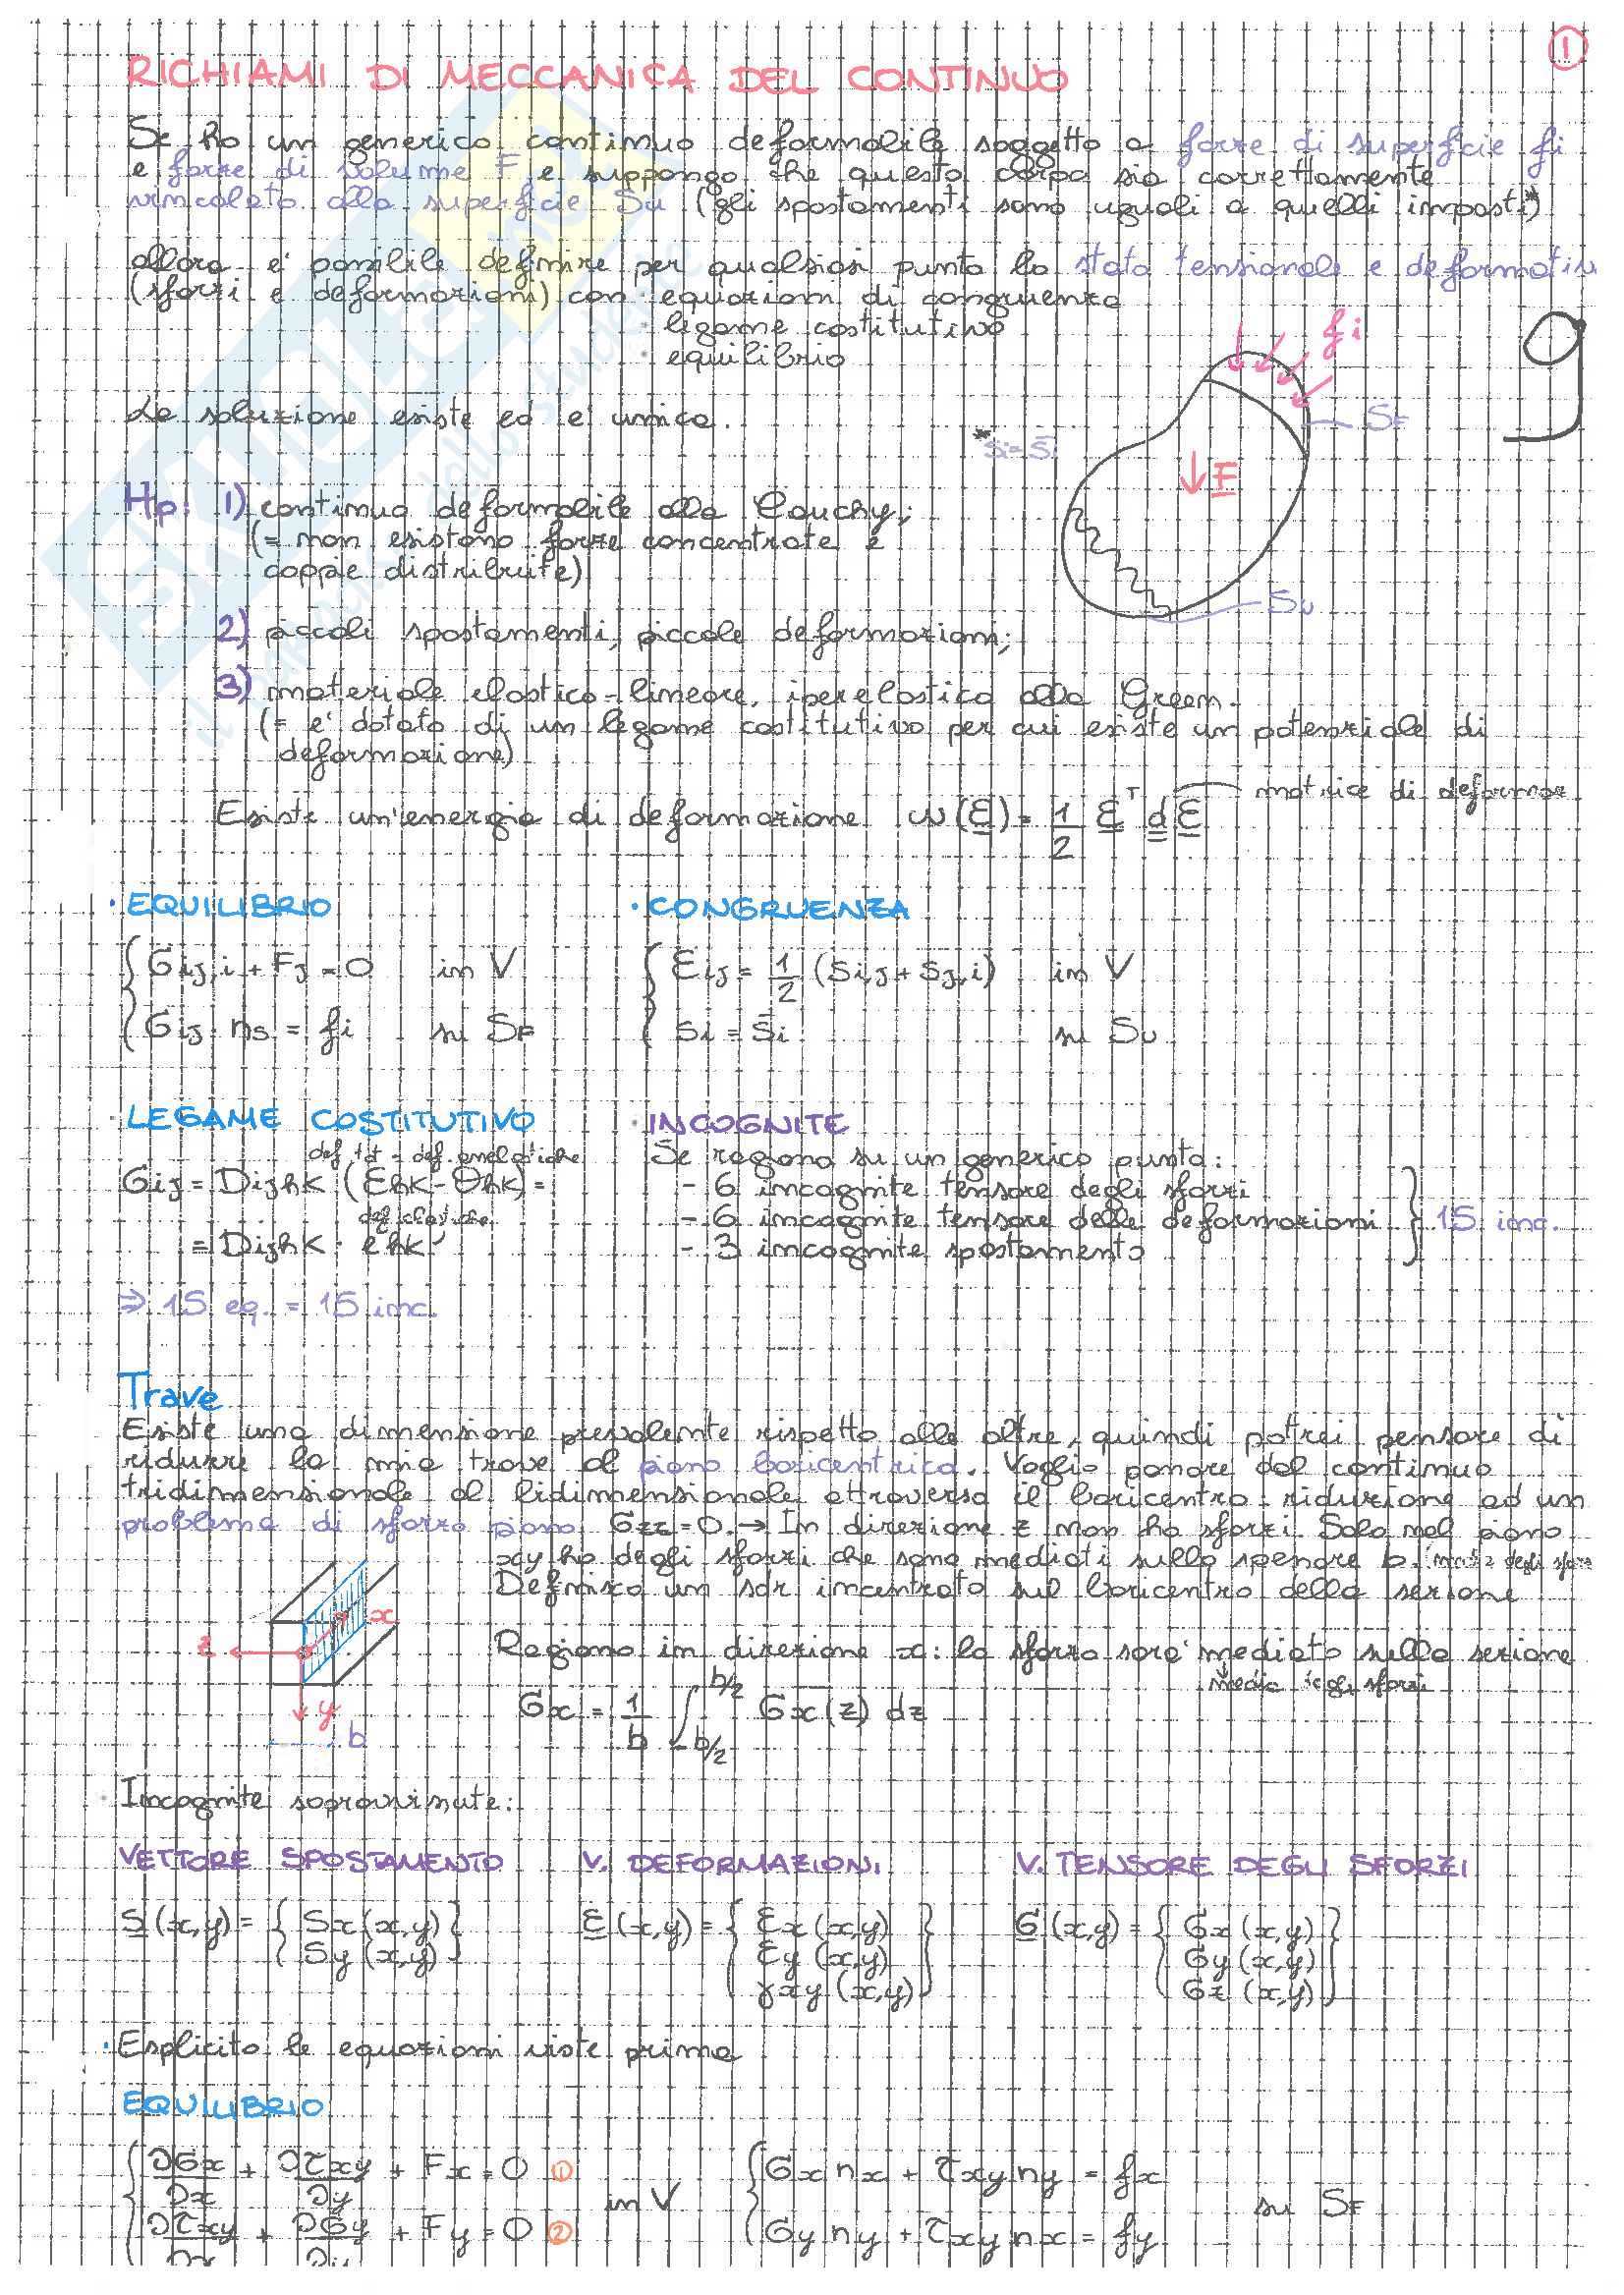 1
RICHIAMI DI MECCANICA DEL CONTINUO
Se ho un generico continuo deformabile soggetto a forze di superficie fi
e forze di volume F e suppongo che questo corpo sia correttamente
vincolato alla superficie Su (gli spostamenti sono uguali a quelli imposti)*
allora e' possibile definire per qualsiasi punto lo stato tensionale e deformativ
(sforzi e deformazioni) con · equazioni di congruenza
· legame costitutivo
· equilibrio
fi
La soluzione esiste ed e' unica.
SF
* si = s̄i
F
Hp: 1) continuo deformabile alla Cauchy;
(= non esistono forze concentrate e
coppie distribuite)
Su
2) piccoli spostamenti, piccole deformazioni;
3) materiale elastico-lineare, iperelastico alla Green.
(= e' dotato di un legame costitutivo per cui esiste un potenziale di
deformazione)
Esiste un'energia di deformazione w(ε) = 1/2 ε^T d ε matrice di deformaz
· EQUILIBRIO · CONGRUENZA
{ σij,i + Fj = 0 in V { εij = 1/2 (si,j + sj,i) in V
{ σij · ns = fi su SF { si = s̄i su Su
· LEGAME COSTITUTIVO · INCOGNITE
def. tot - def. anelastiche Se ragiono su un generico punto:
σij = Dijhk (εhk - θhk) = - 6 incognite tensore degli sforzi
def. elastiche - 6 incognite tensore delle deformazioni } 15 inc.
= Dijhk · ehk - 3 incognite spostamento
⇒ 15 eq. = 15 inc.
Trave
Esiste una dimensione prevalente rispetto alle altre, quindi potrei pensare di
ridurre la mia trave al piano baricentrico. Voglio passare dal continuo
tridimensionale al bidimensionale attraverso il baricentro: riduzione ad un
problema di sforzo piano σzz = 0. → In direzione z non ho sforzi. Solo nel piano
xy ho degli sforzi che sono mediati sullo spessore b.
Definisco un sdr incentrato sul baricentro della sezione
z x
Ragiono in direzione x: lo sforzo sara' mediato sulla sezione
media degli sforzi
y
b
σx = 1/b ∫ b/2 -b/2 σx(z) dz
· Incognite sopravvissute:
VETTORE SPOSTAMENTO V. DEFORMAZIONI V. TENSORE DEGLI SFORZI
S (x,y) = { Sx (x,y) ε (x,y) = { εx (x,y) σ (x,y) = { σx (x,y)
Sy (x,y) } εy (x,y) σy (x,y)
γxy (x,y) } σz (x,y) }
· Esplicito le equazioni viste prima
EQUILIBRIO
{ ∂σx/∂x + ∂τxy/∂y + Fx = 0 ① in V { σx nx + τxy ny = fx su SF
{ ∂τxy/∂x + ∂σy/∂y + Fy = 0 ② { σy ny + τxy nx = fy